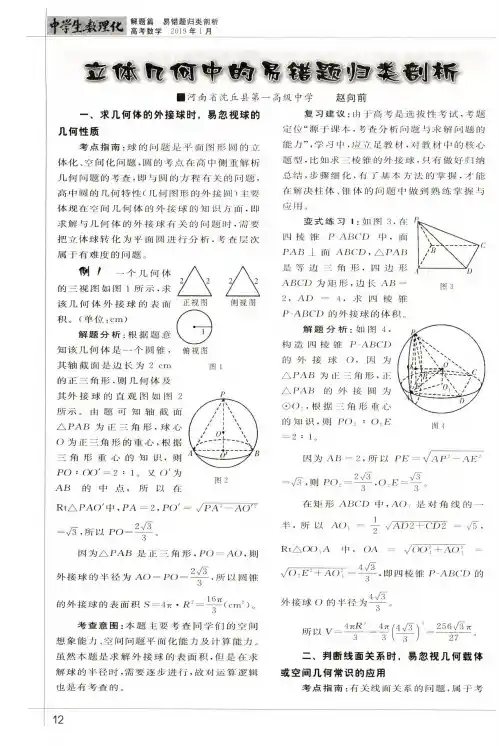 中学生数理化
解题篇 易错题归类剖析
高考数学 2019年1月
立体几何中的易错题归类剖析
■河南省沈丘县第一高级中学 赵向前
一、求几何体的外接球时,易忽视球的
几何性质
考点指南:球的问题是平面图形圆的立
体化、空间化问题,圆的考点在高中侧重解析
几何问题的考查,即与圆的方程有关的问题,
高中圆的几何特性(几何图形的外接圆)主要
体现在空间几何体的外接球的知识方面,即
求解与几何体的外接球有关的问题时,需要
把立体球转化为平面圆进行分析,考查层次
属于有难度的问题。
例1 一个几何体
的三视图如图1所示,求
该几何体外接球的表面
积。(单位:cm)
2 2 2 2
正视图 侧视图
1
俯视图
图1
解题分析:根据题意
知该几何体是一个圆锥,
其轴截面是边长为2 cm
的正三角形,则几何体及
其外接球的直观图如图2
所示。由题可知轴截面
△PAB为正三角形,球心
O为正三角形的重心,根据
三角形重心的知识,则
PO∶OO′=2∶1。又O′为
AB的中点,所以在
P
O
A O′ B
图2
Rt△PAO′中,PA=2,PO′=√(PA²-AO′²)
=√3,所以PO=2√3/3。
因为△PAB是正三角形,PO=AO,则
外接球的半径为AO=PO=2√3/3,所以圆锥
的外接球的表面积S=4π·R²=16π/3(cm²)。
考查意图:本题主要考查同学们的空间
想象能力、空间问题平面化能力及计算能力。
虽然本题是求解外接球的表面积,但是在求
解球的半径时,需要逐步进行,故对运算逻辑
也是有考查的。
复习建议:由于高考是选拔性考试,考题
定位“源于课本,考查分析问题与求解问题的
能力”,学习中,应立足教材,对教材中的核心
题型,比如求三棱锥的外接球,只有做好归纳
总结,步骤细化,有了基本方法的掌握,才能
在解决柱体、锥体的问题中做到熟练掌握与
应用。
变式练习1:如图3,在
四棱锥P-ABCD中,面
PAB⊥面ABCD,△PAB
是等边三角形,四边形
ABCD为矩形,边长AB=
2,AD=4,求四棱锥
P-ABCD的外接球的体积。
P
B C
A D
图3
解题分析:如图4,
构造四棱锥P-ABCD
的外接球O,因为
△PAB为正三角形,正
△PAB的外接圆为
⊙O₂,根据三角形重心
的知识,则PO₂∶O₂E
=2∶1。
图4
因为AB=2,所以PE=√(AP²-AE²)
=√3,则PO₂=2√3/3,O₂E=√3/3。
在矩形ABCD中,AO₁是对角线的一
半,所以AO₁=1/2√(AD2+CD2)=√5,
Rt△OO₁A中,OA=√(OO₁²+AO₁²)=
√(O₂E²+AO₁²)=4√3/3,即四棱锥P-ABCD的
外接球O的半径为4√3/3。
所以V=4πR³/3=4π/3(4√3/3)³=256√3π/27。
二、判断线面关系时,易忽视几何载体
或空间几何常识的应用
考点指南:有关线面关系的问题,属于考
12